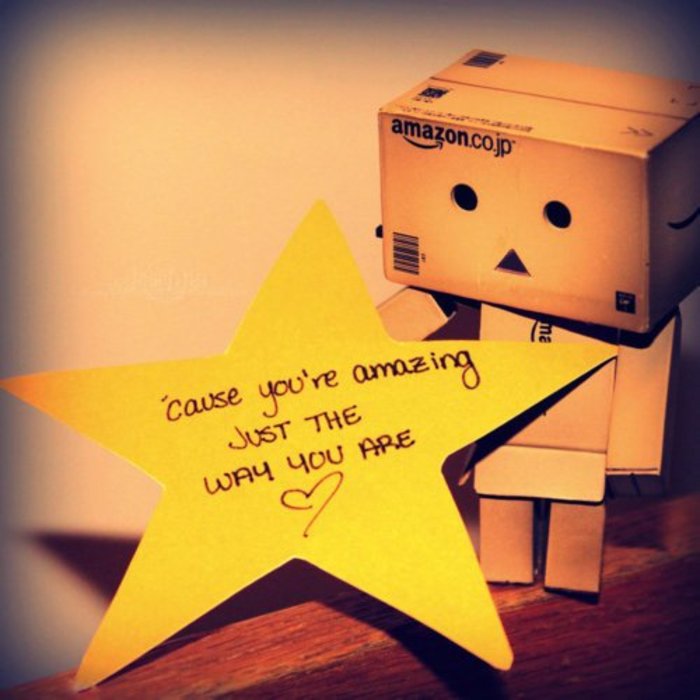 amazon.co.jp
ama
'cause you're amazing
JUST THE
WAY YOU ARE